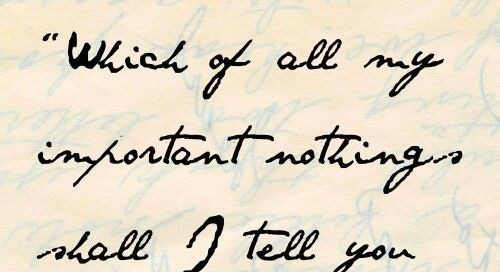 "Which of all my
important nothings
shall I tell you